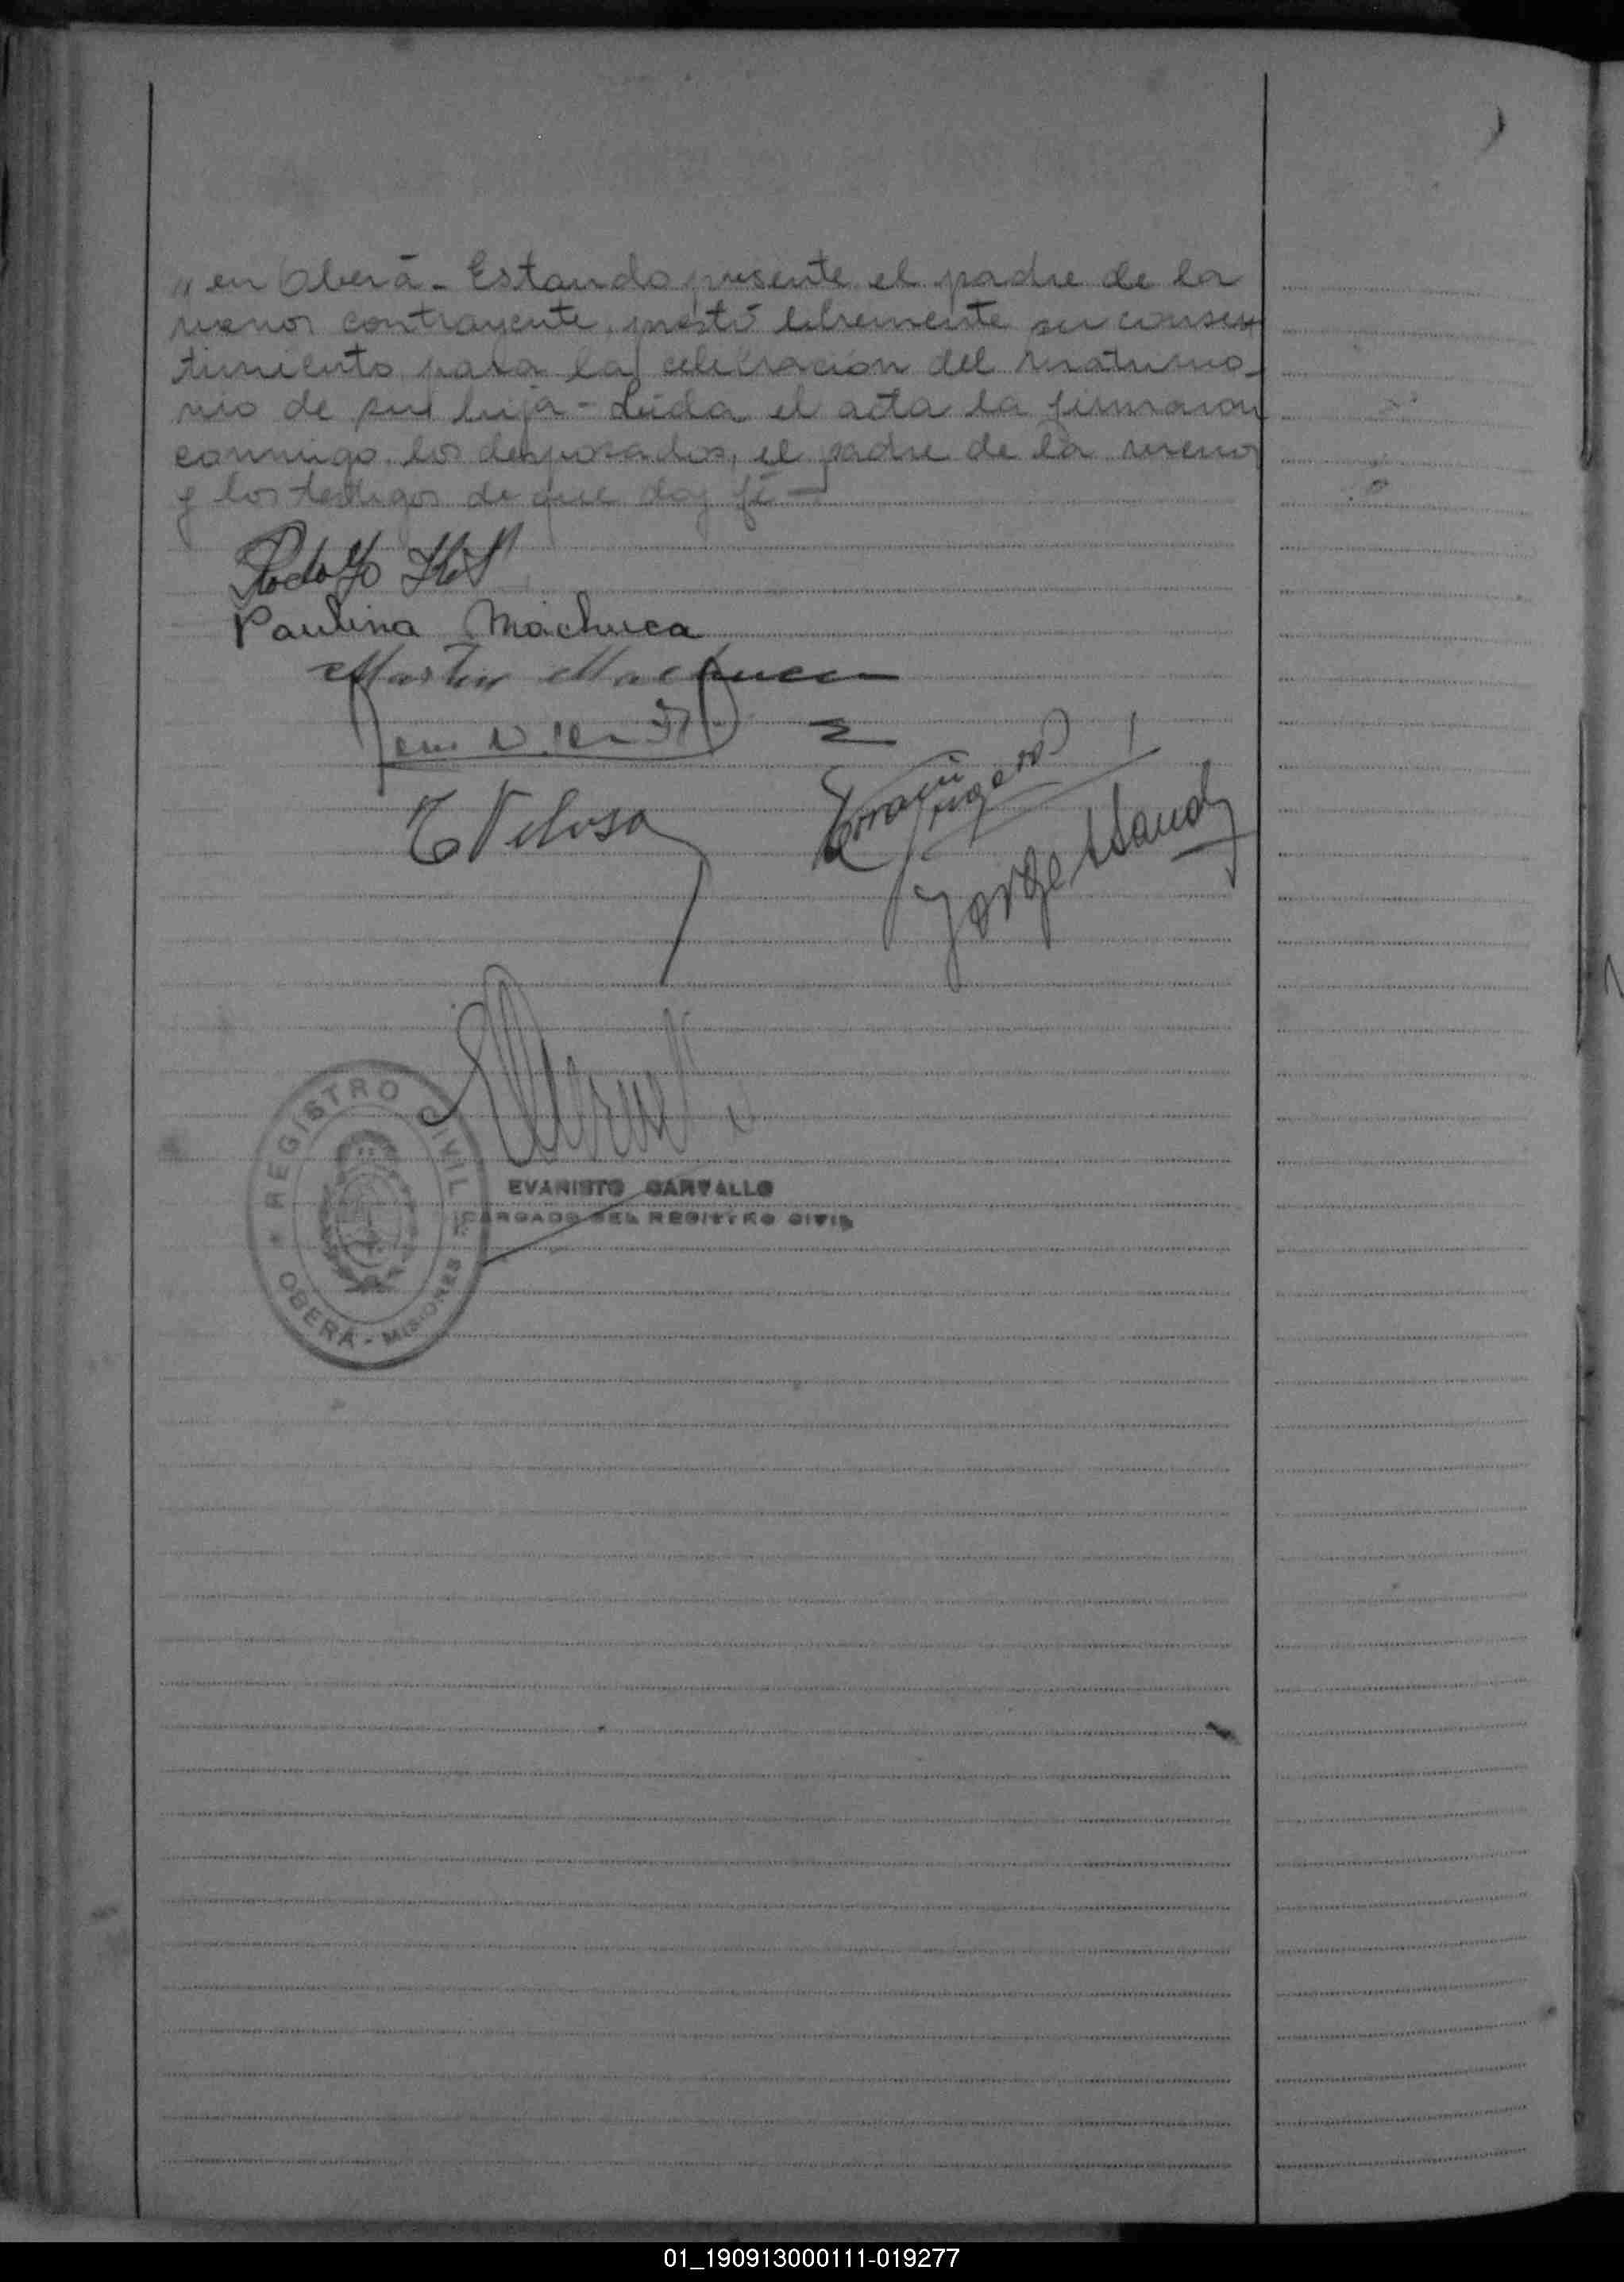 " en Oberá - Estando presente el padre de la
menor contrayente, prestó libremente su consen
timiento para la celebración del matrimo-
nio de su hija - Leída el acta la firmaron
conmigo los desposados, el padre de la menor
y los testigos de que doy fé -
Rodolfo
Paulina Machuca
Martin Machuca
Velosa
Jorge
REGISTRO CIVIL
OBERÁ - MISIONES
EVARISTO CARVALLO
CARGADO DEL REGISTRO CIVIL
01_190913000111-019277